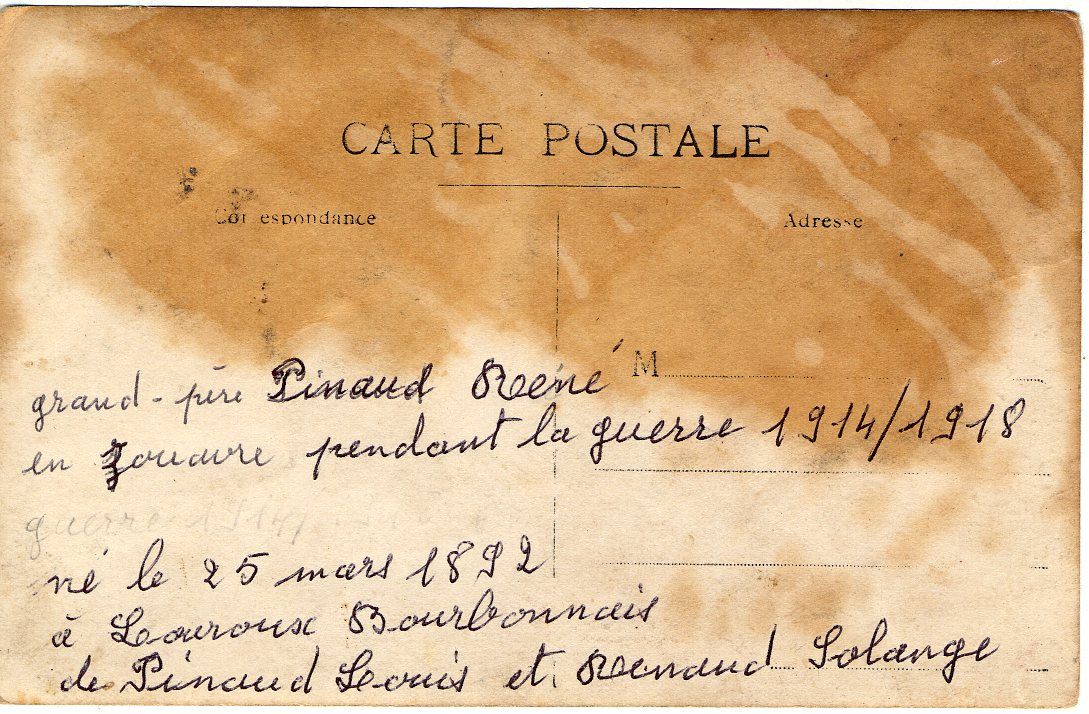 CARTE POSTALE
Correspondance
Adresse
M
grand-père Pinaud René
en zouavre pendant la guerre 1914/1918
guerre 1914/
né le 25 mars 1892
à Louroux Bourbonnais
de Pinaud Louis et Renaud Solange